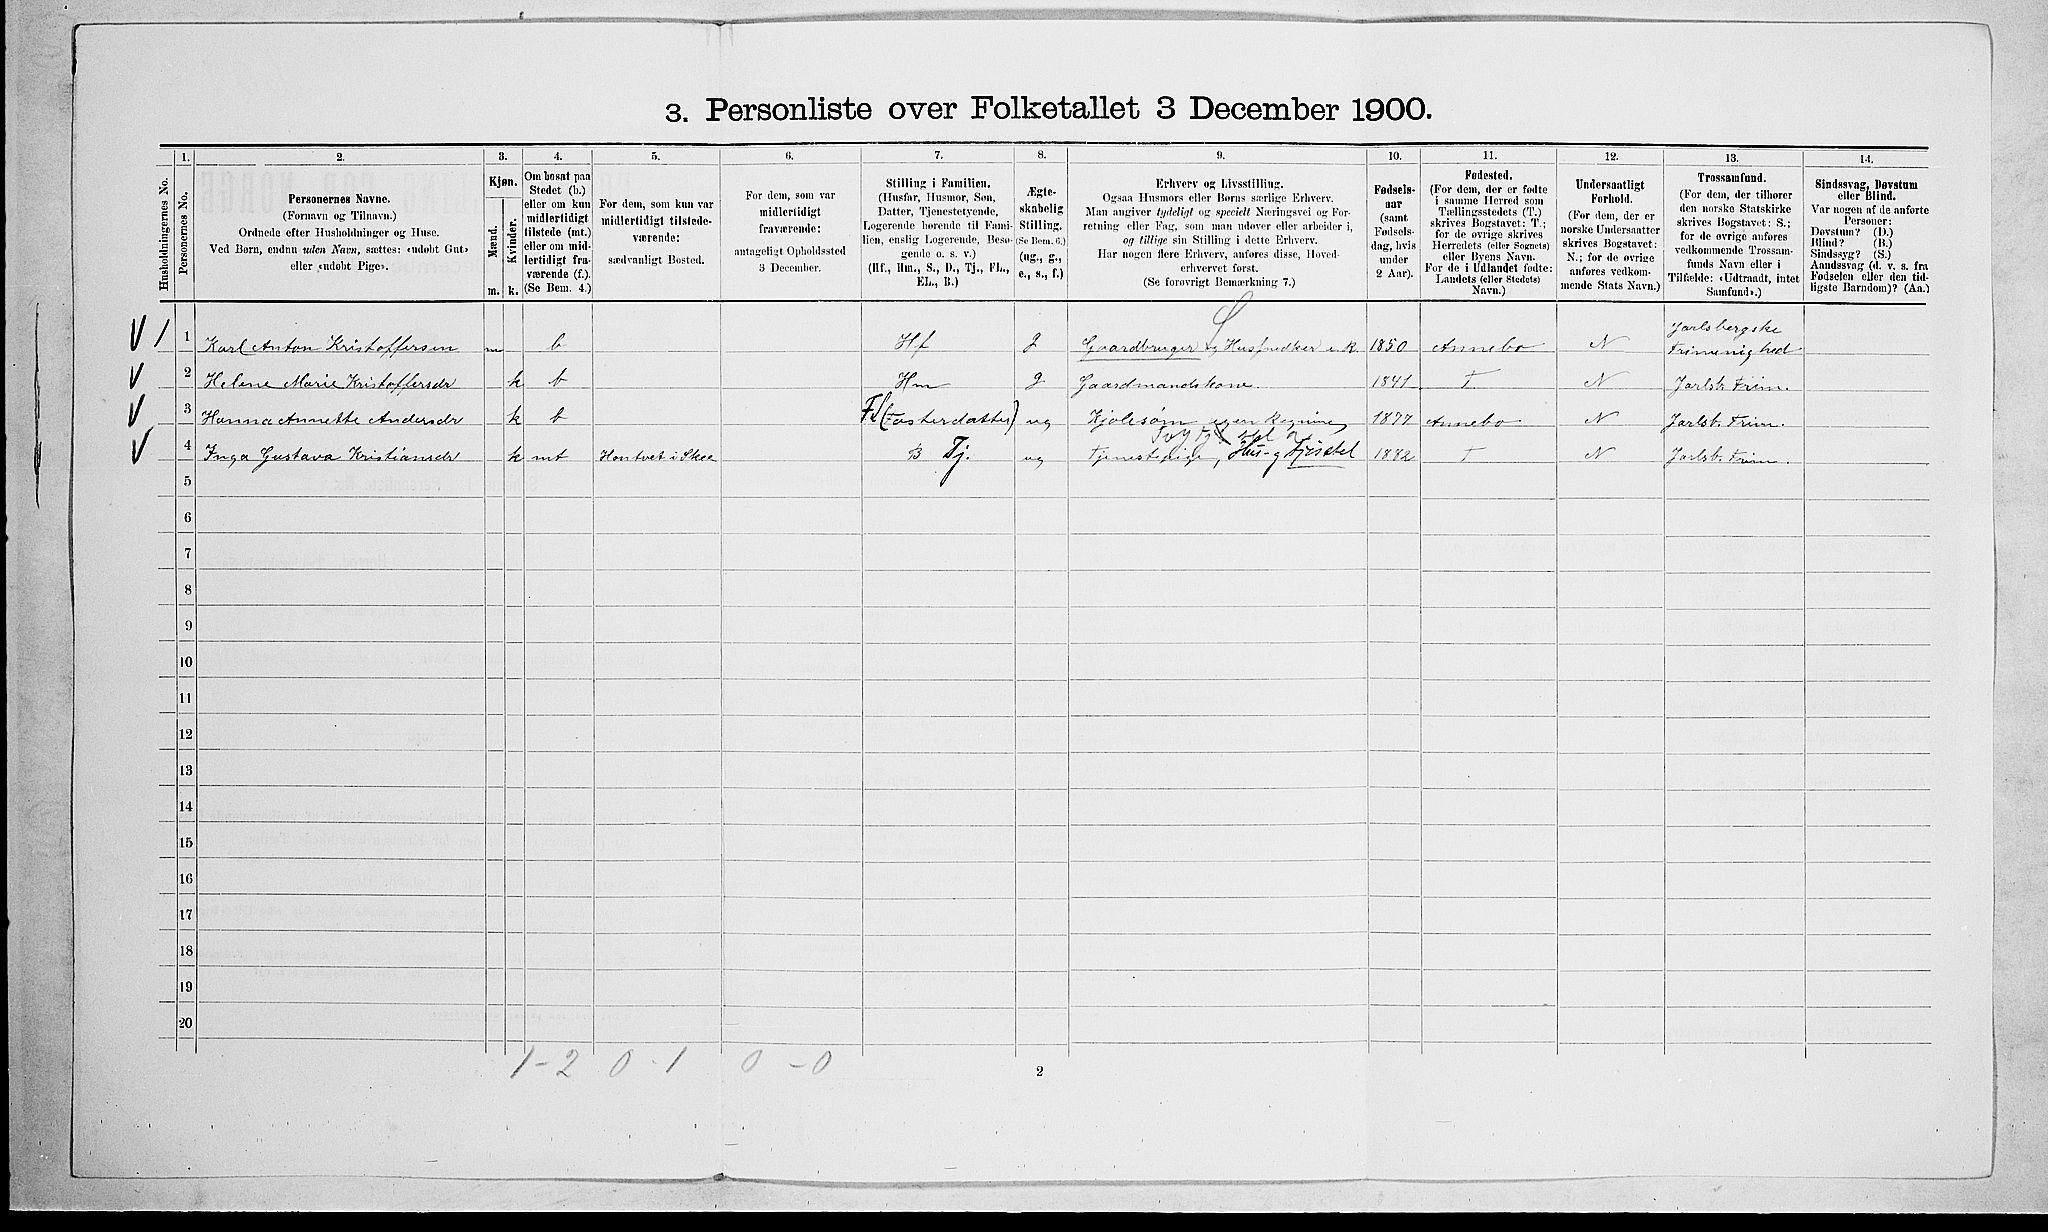 3. Personliste over Folketallet 3 December 1900.
1. 2. 3. 4. 5. 6. 7. 8. 9. 10. 11. 12. 13. 14.
Husholdningernes No.
Personernes No.
Personernes Navne.
(Fornavn og Tilnavn.)
Ordnede efter Husholdninger og Huse.
Ved Børn, endnu uden Navn, sættes: «udøbt Gut»
eller «udøbt Pige».
Kjøn.
Mænd.
Kvinder.
m. k.
Om bosat paa
Stedet (b.)
eller om kun
midlertidigt
tilstede (mt.)
eller om mid-
lertidigt fra-
værende (f.).
(Se Bem. 4.)
For dem, som kun var
midlertidigt tilstede-
værende:
sædvanligt Bosted.
For dem, som var
midlertidigt
fraværende:
antageligt Opholdssted
3 December.
Stilling i Familien.
(Husfar, Husmor, Søn,
Datter, Tjenestetyende,
Logerende hørende til Fami-
lien, enslig Logerende, Besø-
gende o. s. v.)
(Hf., Hm., S., D., Tj., FL.,
EL., B.)
Ægte-
skabelig
Stilling.
(Se Bem. 6.)
(ug., g.,
e., s., f.)
Erhverv og Livsstilling.
Ogsaa Husmors eller Børns særlige Erhverv.
Man angiver tydeligt og specielt Næringsvei og For-
retning eller Fag, som man udøver eller arbeider i,
og tillige sin Stilling i dette Erhverv.
Har nogen flere Erhverv, anføres disse, Hoved-
erhvervet først.
(Se forøvrigt Bemærkning 7.)
Fødsels-
aar
(samt
Fødsels-
dag, hvis
under
2 Aar).
Fødested.
(For dem, der er fødte
i samme Herred som
Tællingsstedets (T.)
skrives Bogstavet: T.;
for de øvrige skrives
Herredets (eller Sognets)
eller Byens Navn.
For de i Udlandet fødte:
Landets (eller Stedets)
Navn.)
Undersaatligt
Forhold.
(For dem, der er
norske Undersaatter
skrives Bogstavet:
N.; for de øvrige
anføres vedkom-
mende Stats Navn.)
Trossamfund.
(For dem, der tilhører
den norske Statskirke
skrives Bogstavet: S.;
for de øvrige anføres
vedkommende Trossam-
funds Navn eller i
Tilfælde: «Udtraadt, intet
Samfund».)
Sindssvag, Døvstum
eller Blind.
Var nogen af de anførte
Personer:
Døvstum? (D.)
Blind? (B.)
Sindssyg? (S.)
Aandssvag (d. v. s. fra
Fødselen eller den tid-
ligste Barndom)? (Aa.)
V 1 1 Karl Anton Kristoffersen m b Hf g Gaardbruger og Husfredker e. R. 1850 Annebo N Jarlsbergske
Frimenighed
V 2 Helene Marie Kristoffersdr k b Hm g Gaardmandskone. 1841 T N Jarlsb. Frim.
V 3 Hanna Annette Andersdr k b Fl (Fosterdatter) ug Kjolesøm egen Regning 1877 Annebo N Jarlsb. Frim.
V 4 Inga Gustava Kristiansdr k mt Hontvet i Skee B Tj. ug Tjenestepige, Hus- og Fjøsstel 1882 T N Jarlsb. Frim.
5
6
7
8
9
10
11
12
13
14
15
16
17
18
19
20
1-2 0-1 0-0
2